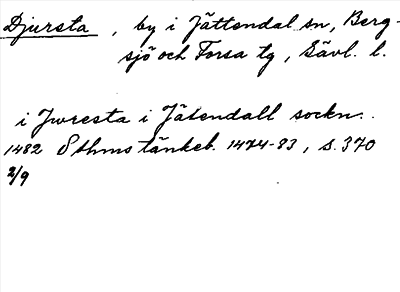 Djursta, by i Jättendal sn, Berg-
sjö och Forsa tg, Gävl. l.
i Jwresta i Jätendall sockn.
1482 Sthms tänkeb. 1474-83, s. 370
2/9